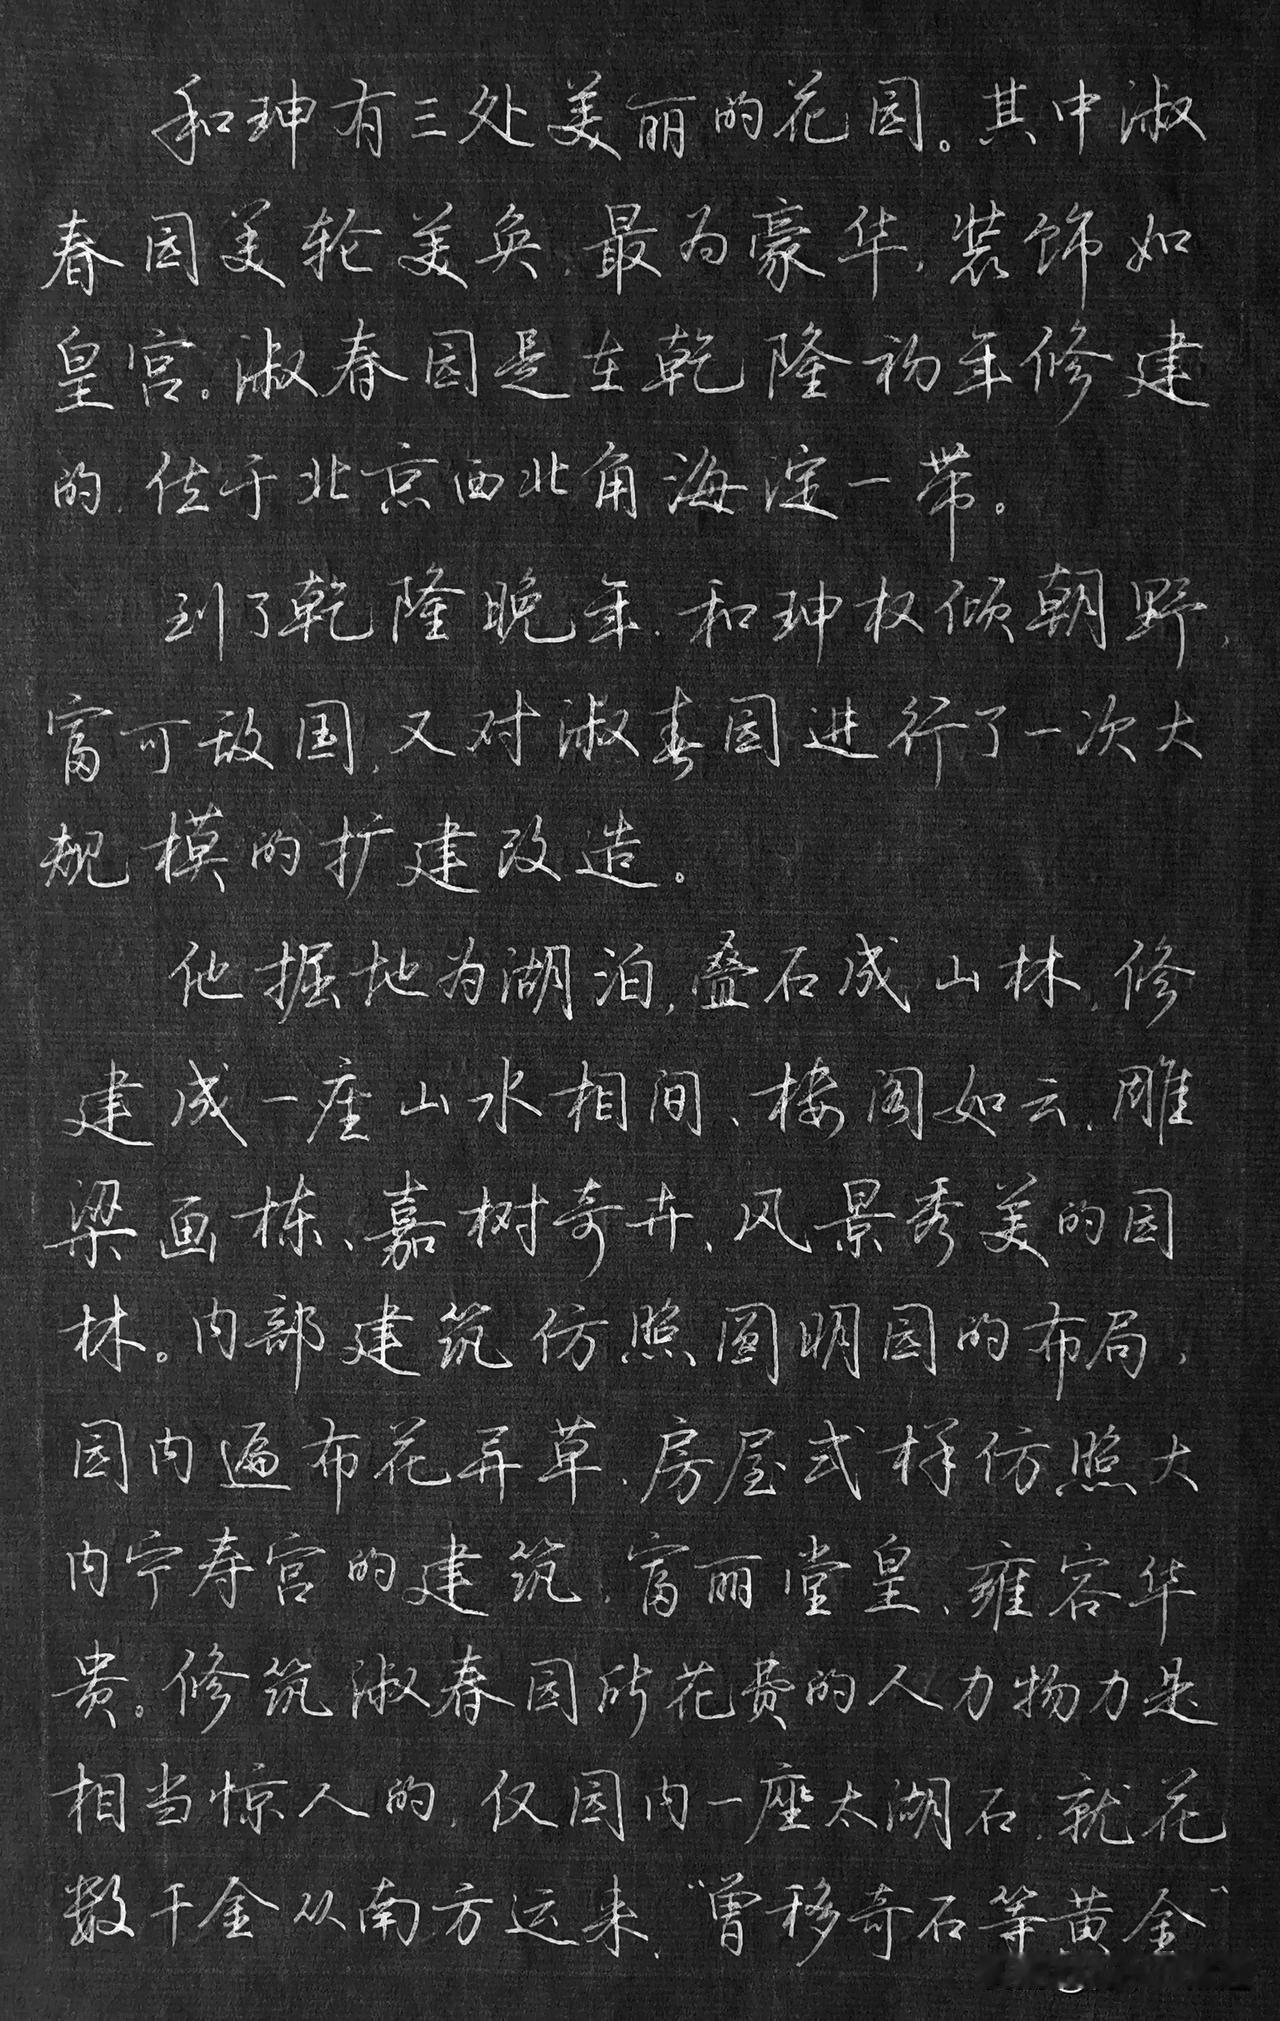 和珅有三处美丽的花园。其中淑
春园美轮美奂,最为豪华,装饰如
皇宫。淑春园是在乾隆初年修建
的,位于北京西北角海淀一带。
到了乾隆晚年,和珅权倾朝野,
富可敌国,又对淑春园进行了一次大
规模的扩建改造。
他掘地为湖泊,叠石成山林,修
建成一座山水相间、楼阁如云、雕
梁画栋、嘉树奇卉、风景秀美的园
林。内部建筑仿照圆明园的布局,
园内遍布花卉草,房屋式样仿照大
内宁寿宫的建筑,富丽堂皇、雍容华
贵。修筑淑春园所花费的人力物力是
相当惊人的,仅园内一座太湖石,就花
数千金从南方运来,“曾移奇石等黄金”